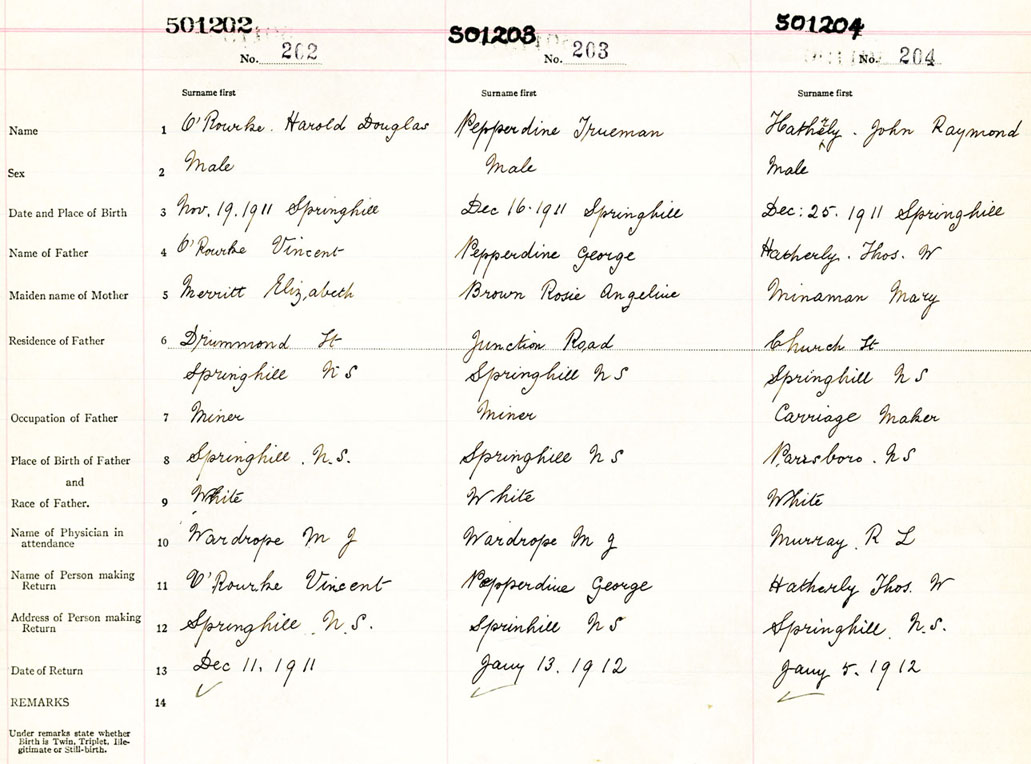 501202 501203 501204
No. 202 No. 203 No. 204
Surname first Surname first Surname first
Name 1 O'Rourke. Harold Douglas Pepperdine Trueman Hatherly. John Raymond
Sex 2 Male Male Male
Date and Place of Birth 3 Nov. 19. 1911 Springhill Dec 16. 1911 Springhill Dec: 25. 1911 Springhill
Name of Father 4 O'Rourke Vincent Pepperdine George Hatherly. Thos. W
Maiden name of Mother 5 Merritt Elizabeth Brown Rosie Angeline Minaman Mary
Residence of Father 6 Drummond St Junction Road Church St
Springhill N S Springhill N S Springhill N S
Occupation of Father 7 Miner Miner Carriage Maker
Place of Birth of Father 8 Springhill. N.S. Springhill N S Parrsboro. N S
and
Race of Father. 9 White White White
Name of Physician in
attendance 10 Wardrope M J Wardrope M J Murray. R L
Name of Person making
Return 11 O'Rourke Vincent Pepperdine George Hatherly Thos. W
Address of Person making
Return 12 Springhill. N.S. Sprinhill N S Springhill. N.S.
Date of Return 13 Dec 11. 1911 Jany 13. 1912 Jany 5. 1912
REMARKS 14
Under remarks state whether
Birth is Twin, Triplet, Ille-
gitimate or Still-birth.